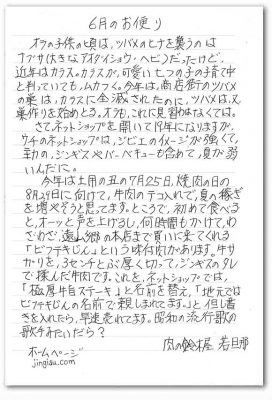 6月のお便り
オラの子供の頃は、ツバメのヒナを襲うのは
ナブサ(大きなアオダイショウ・ヘビ)だったけど、
近年はカラス。カラスが、可愛い七つの子の子育中
と判っていても、ムカつく。今年は、商店街のツバメ
の巣は、カラスに全滅されたのに、ツバメは、又
巣作りを始めとる。オラも、これに見習わなくては。
さて、ネットショップを開いて19年になりますが、
ウチのネットショップは、ジビエのイメージが強くて、
羊肉の、ジンギスやバーベキューも含めて、夏が弱
いんだに。
今年は土用の丑の7月25日、焼肉の日の
8月29日に向けて、牛肉のテコ入れで、夏の稼ぎ
を増やそうと思ってます。ところで、初めて食べる
と、オーッと声を上げるし、何時間もかけて、わ
ざわざ、遠山郷の本店まで買いに来てくれる
「ビフテキじん」という味付肉があります。牛サ
ガリを、3センチとぶ厚く切って、ジンギスのタレ
で揉んだ牛肉です。これを、ネットショップでは、
「極厚牛自ステーキ」と名前を替え、「地元では
ビフテキじんの名前で親しまれてます。」と但し書
きを入れたら、早速売れてます。昭和の流行歌の
歌手みたいだら?
肉の鈴木屋 若旦那
ホームページ
jingisu.com